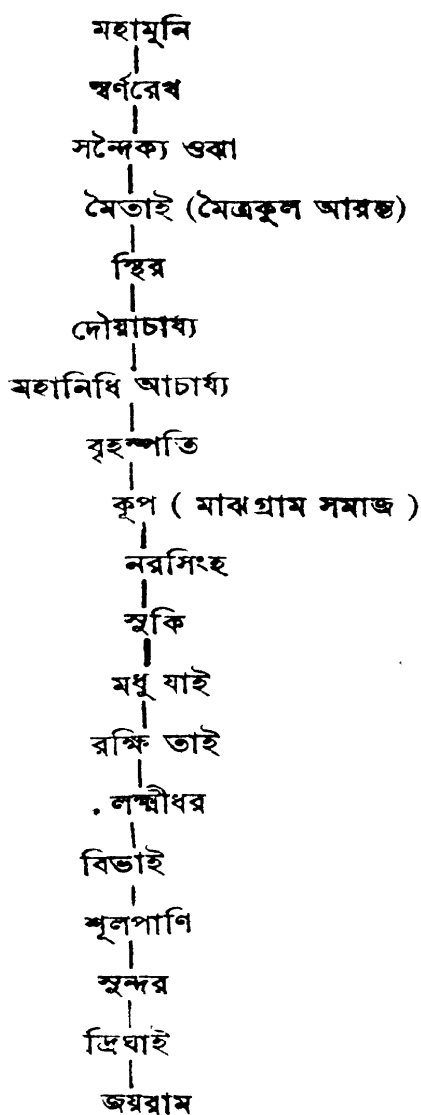 মহামুনি
স্বর্ণরেখ
সন্দৈক্য ওঝা
মৈতাই (মৈত্রকুল আরম্ভ)
স্থির
দৌয়াচার্য্য
মহানিধি আচার্য্য
বৃহস্পতি
কূপ ( মাঝগ্রাম সমাজ )
নরসিংহ
সুকি
মধু যাই
রক্ষি তাই
লক্ষ্মীধর
বিভাই
শূলপাণি
সুন্দর
দ্রিঘাই
জয়রাম